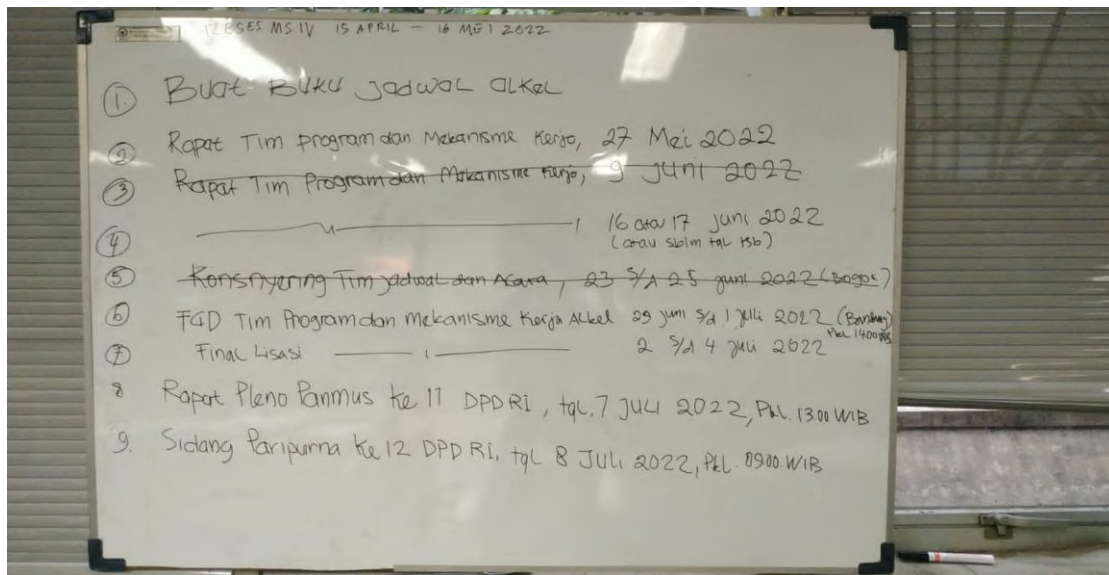 RESES MS IV 15 APRIL - 16 MEI 2022
1. Buat Buku Jadwal Alkel
2 Rapat Tim program dan Mekanisme Kerja, 27 Mei 2022
3 Rapat Tim Program dan Mekanisme Kerja, 9 Juni 2022
4 16 atau 17 Juni 2022
(atau sblm tgl tsb)
5 Konsnyering Tim Jadwal dan Acara, 23 S/d 25 Juni 2022 (Bogor)
6 FGD Tim Program dan Mekanisme Kerja Alkel 29 Juni S/d 1 Juli 2022 (Bandung)
Pkl 1400 WIB
7 Finalisasi 2 S/d 4 Juli 2022
8 Rapat Pleno Panmus Ke 11 DPD RI, tgl. 7 JULI 2022, Pkl. 13.00 WIB
9. Sidang Paripurna Ke 12 DPD RI, tgl 8 JULI 2022, Pkl. 0900. WIB